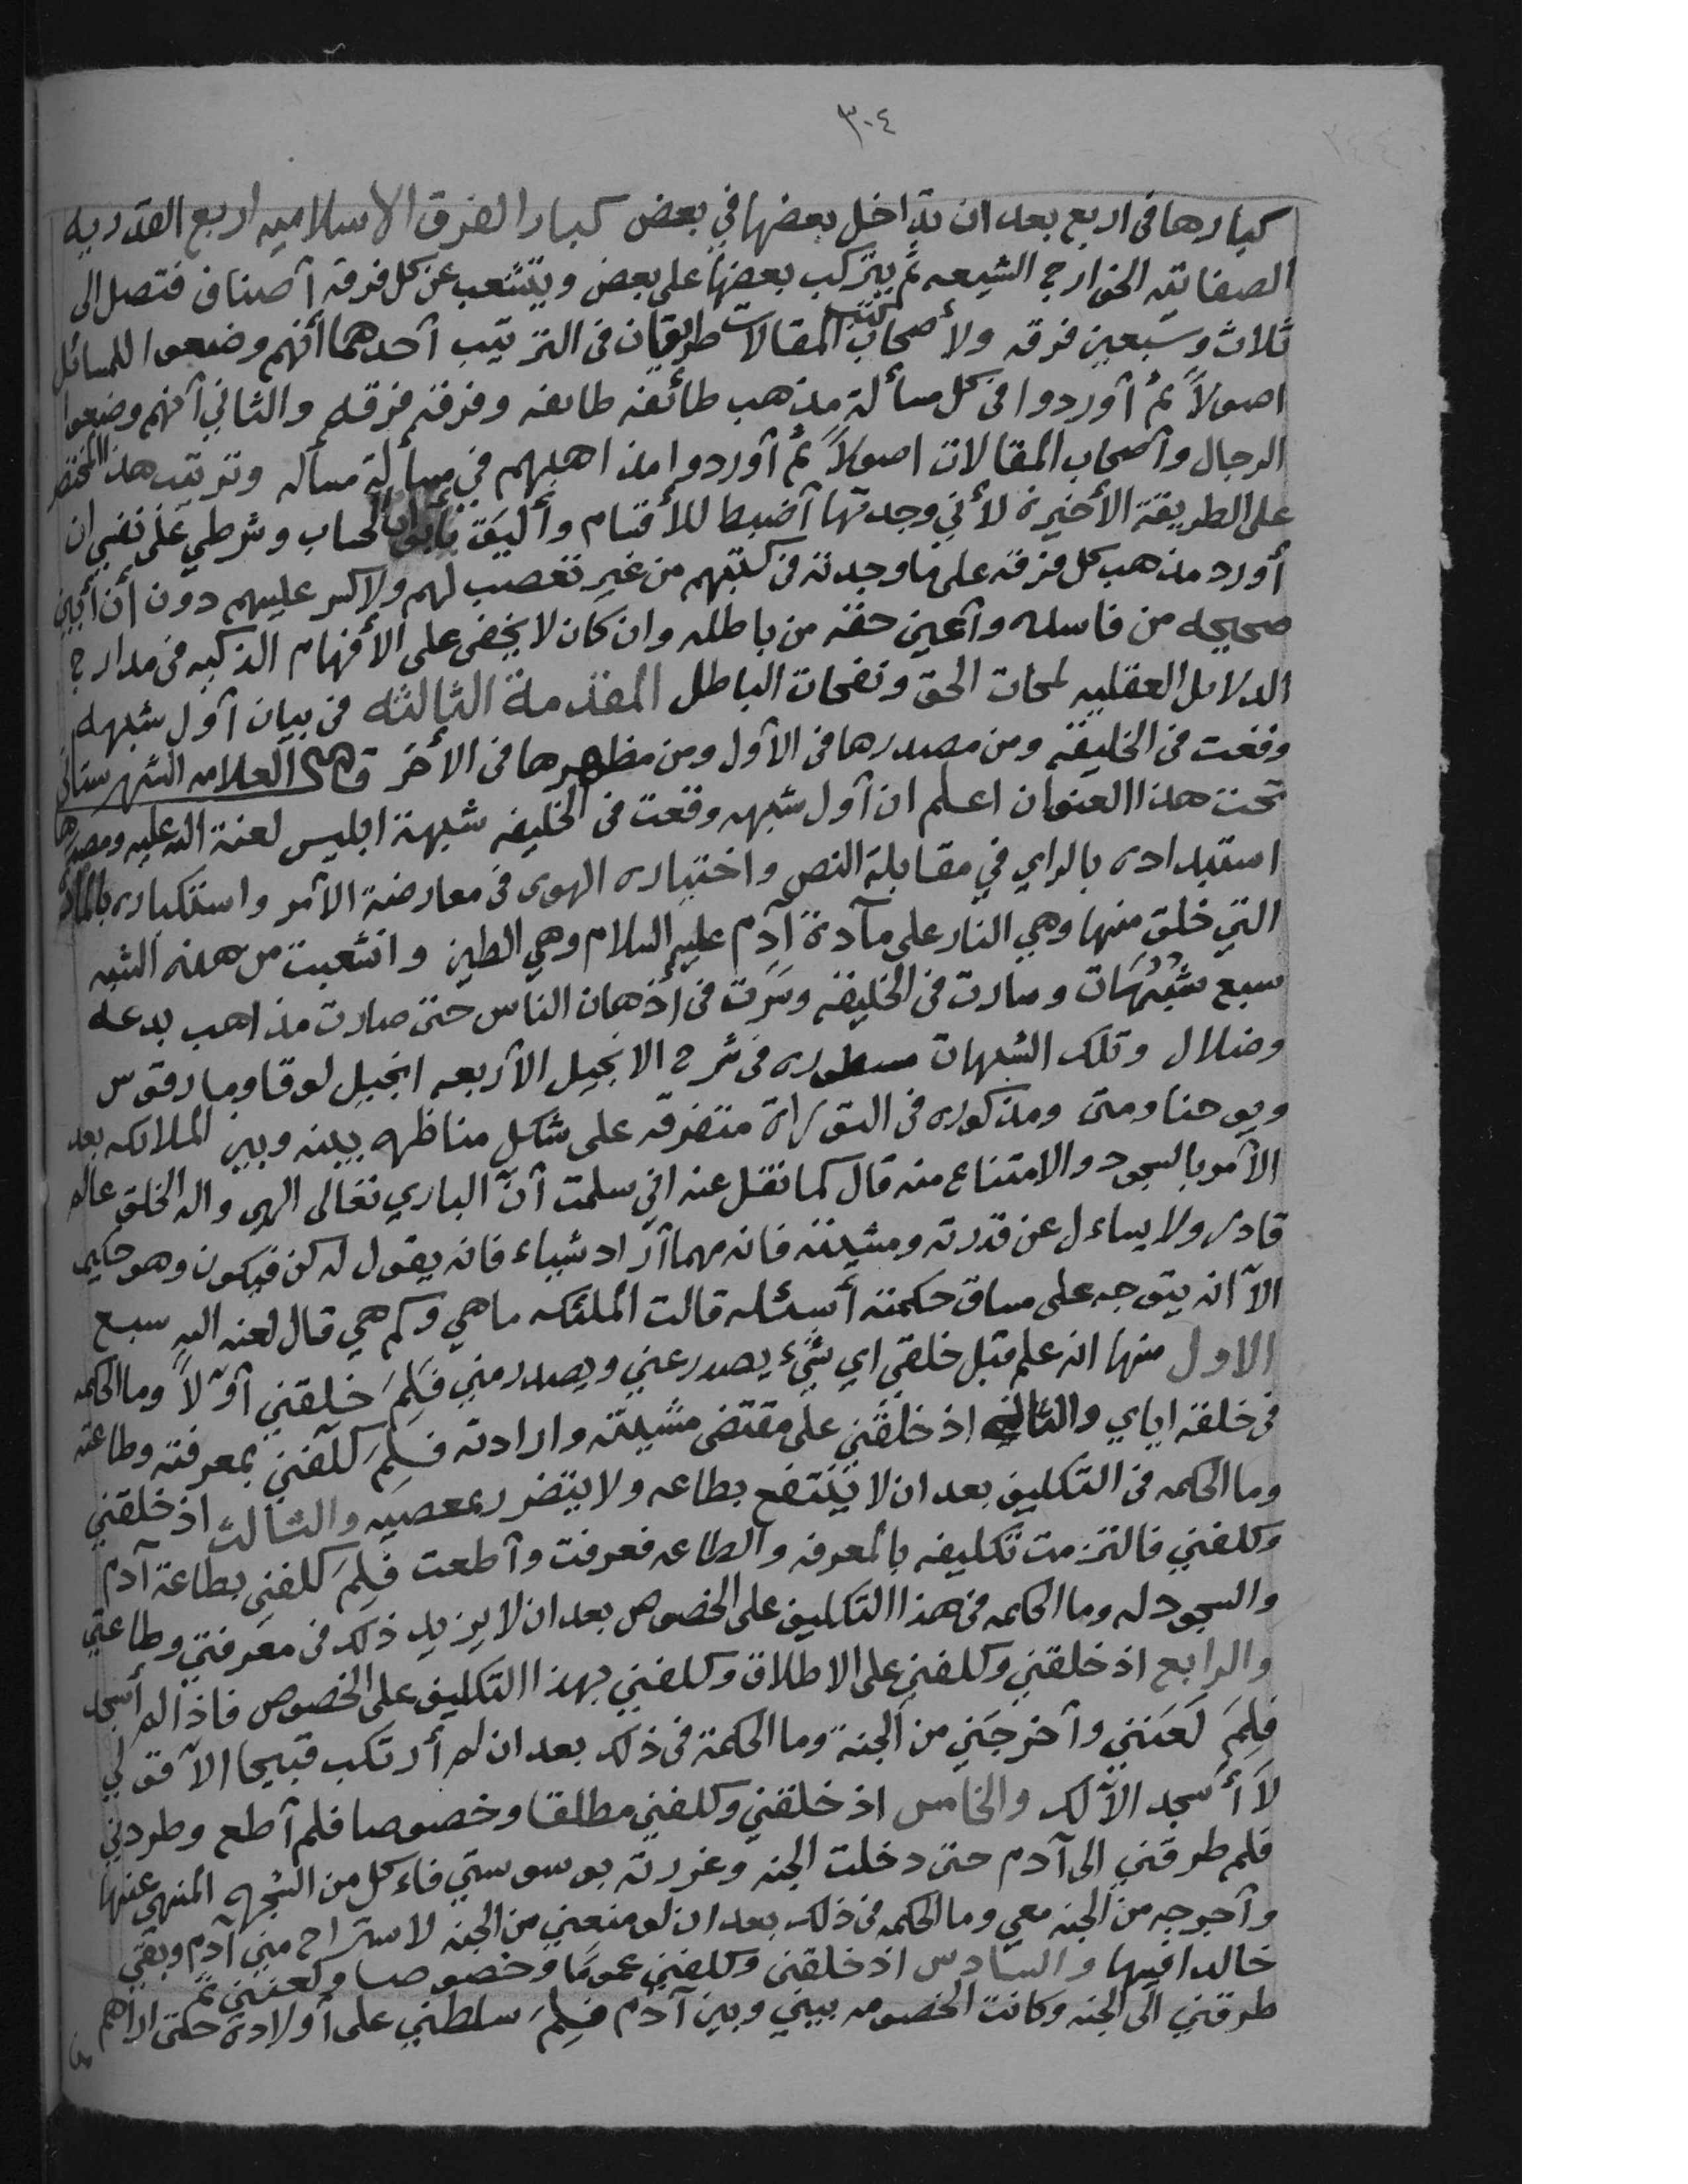 ٣٠٤
كبارها فى اربع بعد ان تداخل بعضها في بعض كبار الفرق الاسلاميه اربع القدريه
الصفاتيه الخوارج الشيعه ثم يتركب بعضها على بعض ويتشعب عن كل فرقة أصناف فتصل الى
ثلاث وسبعين فرقه ولأصحاب كتب المقالات طريقان فى الترتيب أحدهما أنهم وضعوا للمسائل
اصولاً ثم أوردوا فى كل مسألة مذهب طائفه طايفه وفرقه فرقه والثاني أنهم وضعوا
الرجال وأصحاب المقالات اصولاً ثم أوردوا مذاهبهم في مسألة مسأله وترتيب هذا المختصر
على الطريقة الأخيرة لأني وجدتها أضبط للأقسام وأليق بأبواب الحساب وشرطي على نفسي ان
أورد مذهب كل فرقه على ما وجدته فى كتبهم من غير تعصب لهم ولا كسر عليهم دون أن أبين
صحيحه من فاسده وأعين حقه من باطله وان كان لا يخفى على الأفهام الذكيه فى مدارج
الدلايل العقليه لمحات الحق ونفحات الباطل المقدمة الثالثه فى بيان أول شبهه
وقعت فى الخليقه ومن مصدرها فى الأول ومن مظهرها فى الأخر قال العلامه الشهرستانى
تحت هذا العنوان اعلم ان أول شبهه وقعت فى الخليقه شبهة ابليس لعنة الله عليه ومصدرها
استبداده بالراي في مقابلة النص واختياره الهوى فى معارضة الأمر واستكباره بالمادة
التي خلق منها وهي النار على مآدة آدم عليه السلام وهي الطين وانشعبت من هذه الشبه
سبع شُبُهَات وسارت فى الخليقه وسَرَت فى أذهان الناس حتى صارت مذاهب بدعه
وضلال وتلك الشبهات مسطوره فى شرح الانجيل الأربعه انجيل لوقا ومارقوس
ويوحنا ومتى ومذكوره فى التوراة متفرقه على شكل مناظره بينه وبين الملايكه بعد
الأمر بالسجود والامتناع منه قال كما نقل عنه اني سلمت أنّ الباري تعالى الهي واله الخلق عالم
قادر ولا يساءل عن قدرته ومشيئته فانه مهما أراد شيياء فانه يقول له كن فيكون وهو حكيم
الآ انه يتوجه على مساق حكمته أسئله قالت الملئكه ما هي وكم هي قال لعنه الله سبع
الاول منها انه علم قبل خلقي اي شيء يصدر عني ويصدر مني فَلِمَ خلقني أوّلاً وما الحكمه
فى خلقه اياي والثانيه اذ خلقني على مقتضى مشيئته وارادته فَلِمَ كلّفني بمعرفته وطاعته
وما الحكمه فى التكليف بعد ان لا ينتفع بطاعه ولا يتضرر بمعصيه والثالث اذ خلقني
وكلفني فالتزمت تكليفه بالمعرفه والطاعه فعرفت وأطعت فَلِمَ كلفني بطاعة آدم
والسجود له وما الحكمه فى هذا التكليف على الخصوص بعد ان لا يزيد ذلك فى معرفتي وطاعتي
والرابع اذ خلقني وكلفني على الاطلاق وكلفني بهذا التكليف على الخصوص فاذا لم أسجد
فَلِمَ لَعَنَني وأخرجَني من الجنة وما الحكمة فى ذلك بعد ان لم أرتكب قبيحا الآ قولي
لاَ أسجد الآ لك والخامس اذ خلقني وكلفني مطلقا وخصوصا فلم أطع وطردني
فلم طرقني الى آدم حتى دخلت الجنه وغررته بوسوستي فاءكل من الشجره المنهي عنها
وأخرجه من الجنه معي وما الحكمه فى ذلك بعد ان لو منعني من الجنه لاستراح مني آدم وبقي
خالدا فيها والسادس اذ خلقني وكلفني عموماً وخصوصا ولعنني ثم
طرقني الى الجنه وكانت الخصومه بيني وبين آدم فَلِمَ سلطني على أولاده حتى اراهم